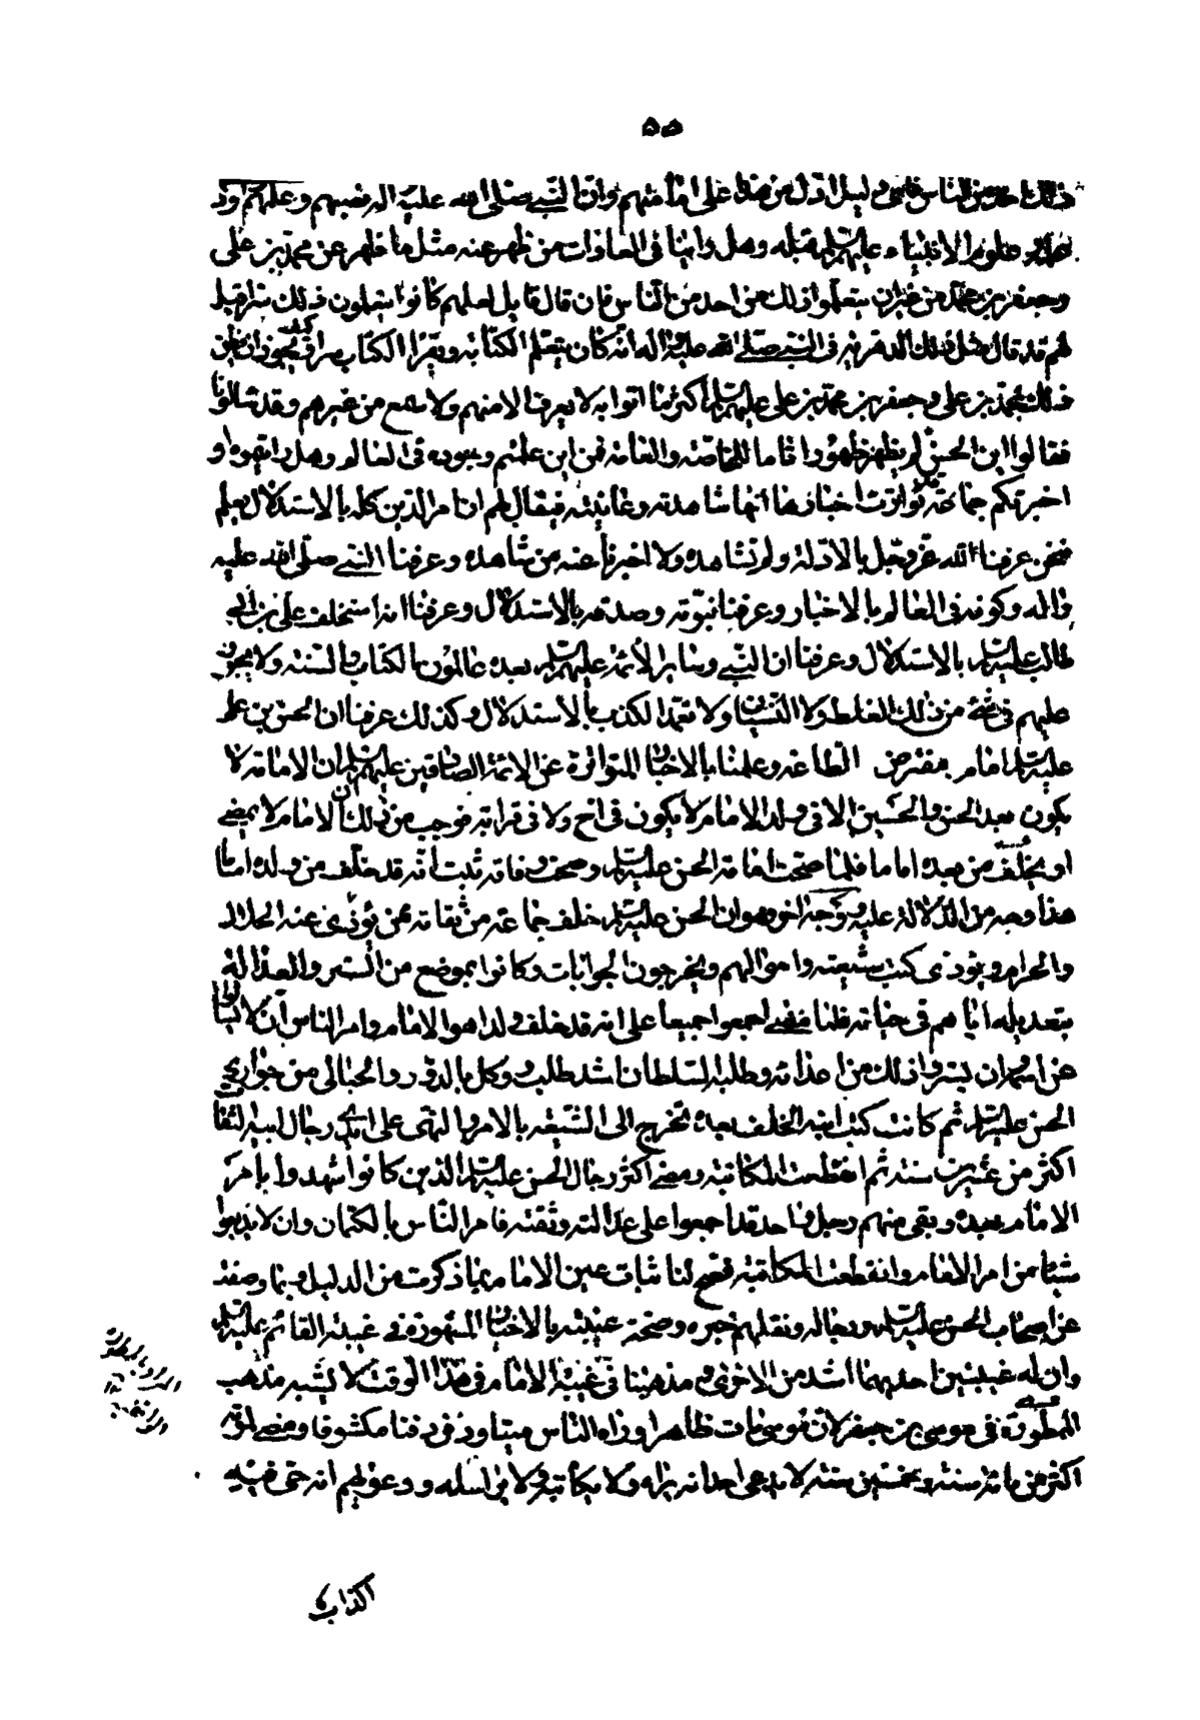 ٥٥
ذلك احد من الناس فاى دليل ادل من هذا على امامتهم وان النبي صلى الله عليه اله نصبهم وعلمهم واودعهم
علمه وعلوم الانبياء عليهم السلم قبله وهل راينا فى العادات من ظهر عنه مثل ما ظهر عن محمد بن على
وجعفر بن محمد من غير ان يتعلموا ذلك من احد من الناس فان قال قايل لعلهم كانوا يتعلمون ذلك سرا قيل
لهم قد قال مثل ذلك الدهرية فى النبي صلى الله عليه واله انه كان يتعلم الكتابة ويقرا الكتاب سرا وكيف يجوز ان يظن
ذلك بمحمد بن على وجعفر بن محمد بن على عليهم السلم واكثر ما اتوا به لا يعرف الا منهم ولا سمع من غيرهم وقد سالونا
فقالوا ابن الحسن لم يظهر ظهورا تاما للخاصة والعامة فمن اين علمتم وجوده فى العالم وهل رايتموه او
اخبرتكم جماعة قد تواترت اخبارها انها شاهدته وعاينته فيقال لهم ان امر الدين كله بالاستدلال يعلم
فنحن عرفنا الله عز وجل بالادلة ولم نشاهده ولا اخبرنا عنه من شاهده وعرفنا النبي صلى الله عليه
واله وكونه فى العالم بالاخبار وعرفنا نبوته وصدقه بالاستدلال وعرفنا انه استخلف على بن ابى
طالب عليه السلم بالاستدلال وعرفنا ان النبي وساير الائمة عليهم السلم بعده عالمون بالكتاب والسنة ولا يجوز
عليهم فى شئ من ذلك الغلط ولا النسيان ولا تعمد الكذب بالاستدلال وكذلك عرفنا ان الحسن بن على
عليه السلم امام مفترض الطاعة وعلمنا بالاخبار المتواترة عن الائمة الصادقين عليهم السلم ان الامامة لا
يكون بعد الحسن والحسين الا فى ولد الامام ولا يكون فى اخ ولا فى قرابة فوجب من ذلك ان الامام لا يمضى
او يخلف من بعده اماما فلما صحت امامة الحسن عليه السلم وصحت وفاته ثبت انه قد خلف من ولده اماما
هذا وجه من الدلالة عليه ووجه اخر وهو ان الحسن عليه السلم خلف جماعة من ثقاته ممن يؤدى عنه الحلال
والحرام ويؤدى كتب شيعته واموالهم ويخرجون الجوابات وكانوا بموضع من الستر والعدالة
بتعديله اياهم فى حياته فلما مضى اجمعوا جميعا على انه قد خلف ولدا هو الامام وامر الناس ان لا يسالوا
عن اسمه وان يستروا ذلك من اعدائه وطلبه السلطان اشد طلب ووكل بالدور والحبالى من جوارى
الحسن عليه السلم ثم كانت كتب ابنه الخلف بعده تخرج الى الشيعة بالامر والنهى على ايدى رجال ابيه الثقات
اكثر من عشرين سنة ثم انقطعت المكاتبة ومضى اكثر رجال الحسن عليه السلم الذين كانوا شهدوا بامر
الامام بعده وبقى منهم رجل واحد قد اجمعوا على عدالته وثقته فامر الناس بالكتمان وان لا يذيعوا
شيئا من امر الامام وانقطعت المكاتبة فصح لنا ثبات عين الامام بما ذكرت من الدليل وبما وصفت
عن اصحاب الحسن عليه السلم ورجاله ونقلهم خبره وصحة غيبته بالاخبار المشهورة فى غيبة القائم عليه السلم
وان له غيبتين احديهما اشد من الاخرى ومذهبنا فى غيبة الامام فى هذا الوقت لا يشبه مذهب
الممطورة فى موسى بن جعفر لان موسى مات ظاهرا وراه الناس ميتا ودفن دفنا مكشوفا ومضى لموته
اكثر من مائة سنة وخمسين سنة لا يدعى احد انه يراه ولا يكاتبه ولا يراسله ودعواهم انه حى فيه
اكذاب